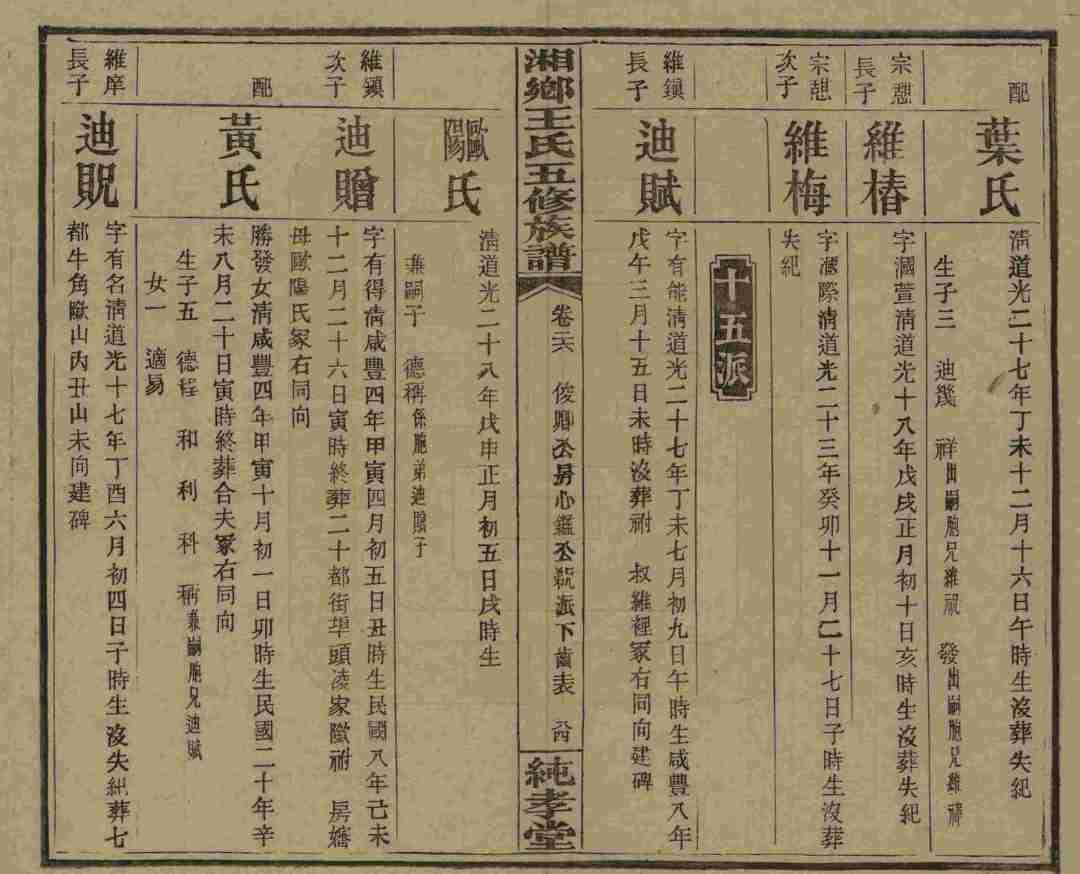 配
葉氏
清道光二十七年丁未十二月十六日午時生沒葬失紀
生子三 迪幾 祥出嗣胞兄維 發出嗣胞兄維
宗憩長子
維椿
字萱清道光十八年戊戌正月初十日亥時生沒葬失紀
宗憩次子
維梅
字際清道光二十三年癸卯十一月二十七日子時生沒葬
失紀
十五派
維鎮長子
迪賦
字有能清道光二十七年丁未七月初九日午時生咸豐八年
戊午三月十五日未時沒葬祔 叔維裡冢右同向建碑
湘鄉王氏五修族譜
卷 俊卿公房心鑑公派下齒表
純孝堂
歐陽氏
清道光二十八年戊申正月初五日戌時生
兼嗣子 德稱係胞弟迪贈子
維鎮次子
迪贈
字有得清咸豐四年甲寅四月初五日丑時生民國八年己未
十二月二十六日寅時終葬二十都街埠頭凌家祔 房嬸
母歐陽氏冢右同向
配
黃氏
勝發女清咸豐四年甲寅十月初一日卯時生民國二十年辛
未八月二十日寅時終葬合夫冢右同向
生子五 德程 和 利 科 稱兼嗣胞兄迪賦
女一 適易
維庠長子
迪貺
字有名清道光十七年丁酉六月初四日子時生 沒失紀葬七
都牛角山內丑山未向建碑